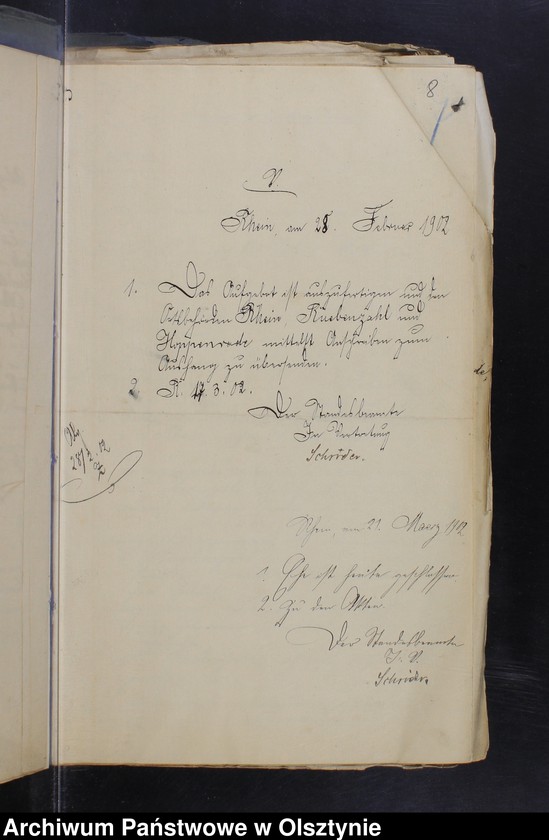 8
V.
Rhein, am 28. Februar 1902
1. Das Aufgebot ist auszufertigen und den
Ortsbehörden Rhein, Rübenzahl und
mittelst Anschreiben zum
Aushang zu übersenden.
2. R. 17.3.02.
Der Standesbeamte
In Vertretung
Schröder.
28/2.02
Rhein, am 21. Maerz 1902
1. Ehe ist heute geschlossen.
2. Zu den Akten.
Der Standesbeamte
I. V.
Schröder.
Archiwum Państwowe w Olsztynie